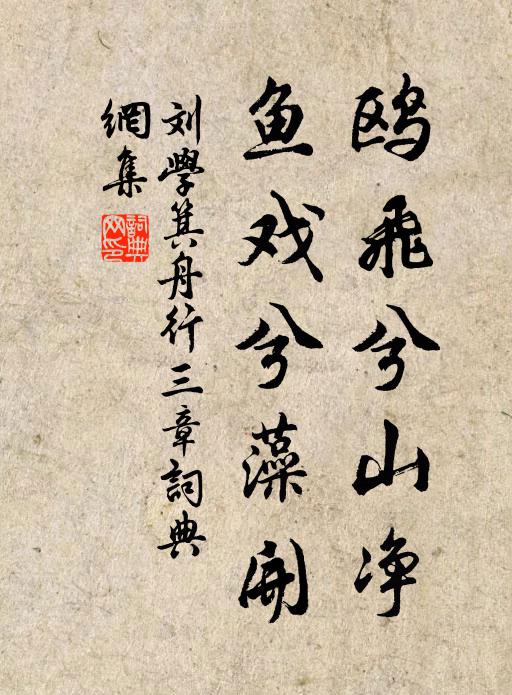 鸥飛兮山净
鱼戏兮藻開
刘學箕舟行三章詞典
網集
詞典網印